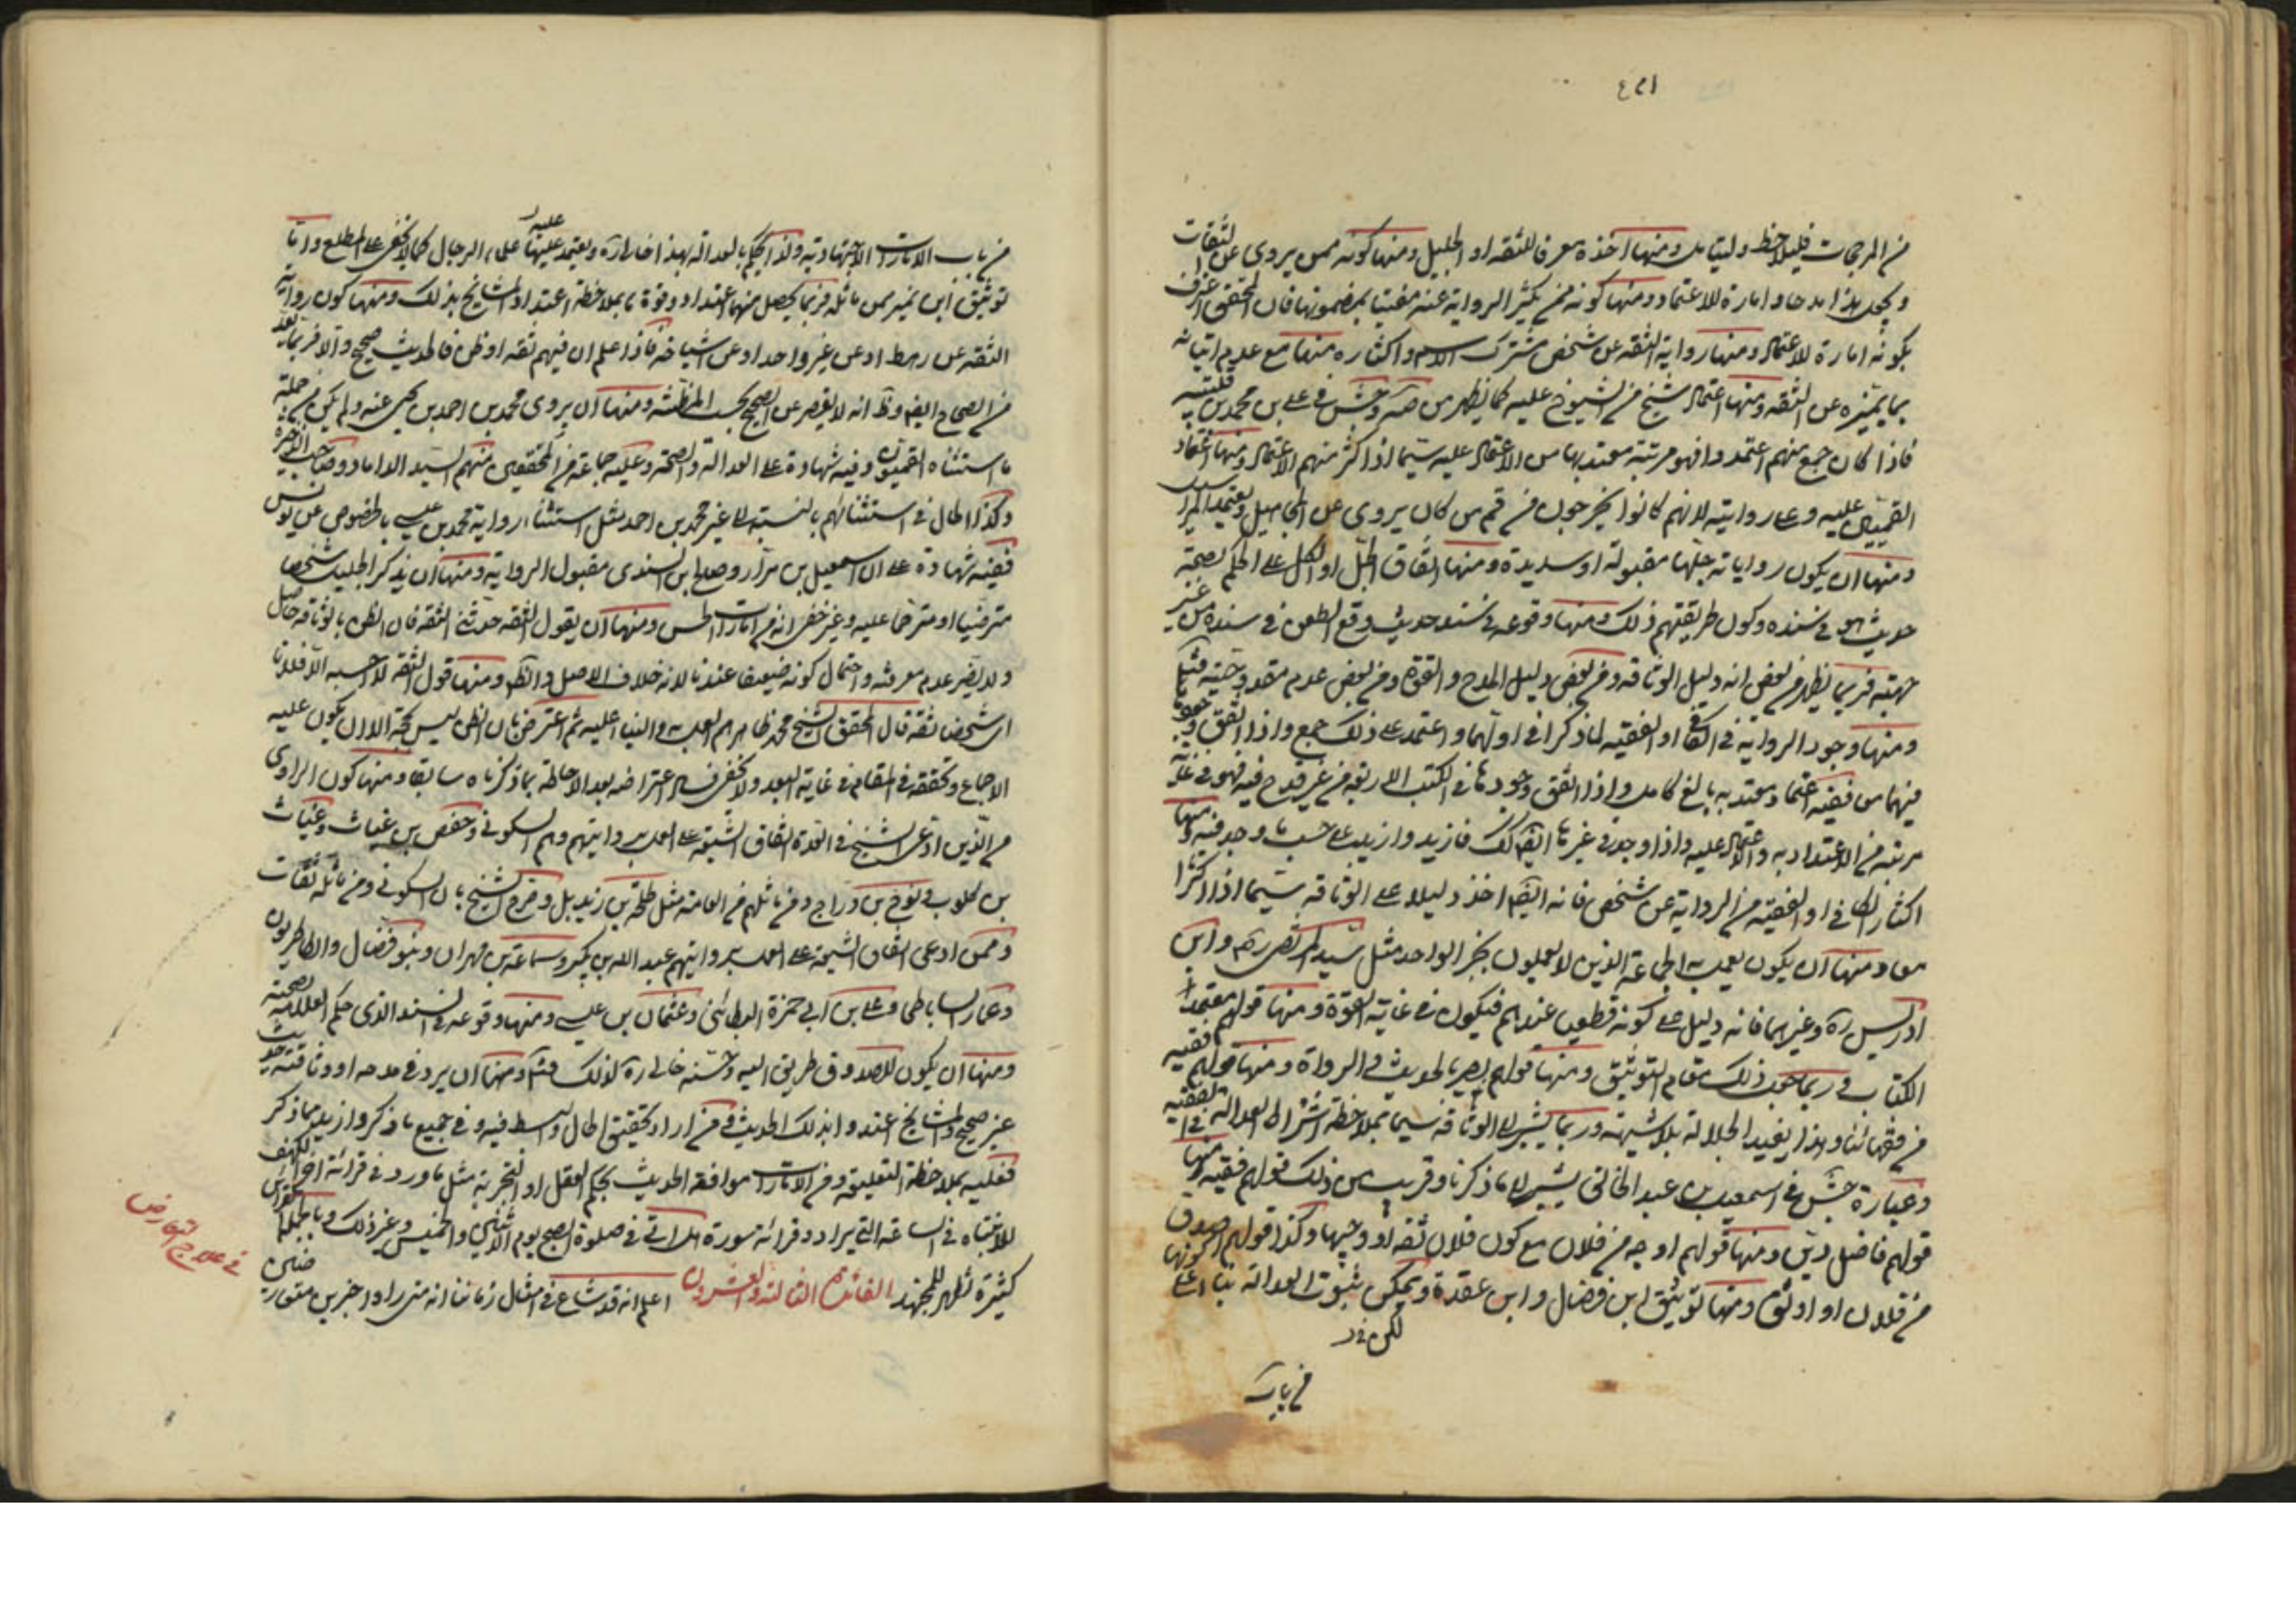 من المرجحات فليلاحظ وليتأمل ومنها اخذه معرفا للثقة او الجليل ومنها كونه ممن يروى عن الثقات
بكونه امارة للاعتماد ومنها رواية الثقة عن شخص مشترك الاسم واكثاره منها مع عدم اتيانه
بما يميزه عن الثقة ومنها اعتماد شيخ من الشيوخ عليه كما يظهر من جش فى على بن محمد بن قتيبة
فاذا كان جمع منهم اعتمدوا فهو مرتبة معتد بها من الاعتماد عليه سيما اذا كثر منهم الاعتماد ومنها اعتماد
القميين عليه وعلى روايته لانهم كانوا يخرجون من قم من كان يروى عن المجاهيل ويعتمد المراسيل
ومنها ان يكون رواياته جلها مقبولة او سديدة ومنها اتفاق الجل او الكل على الحكم بصحة
حديث هو فى سنده وكون طريقتهم ذلك ومنها وقوعه فى سند حديث وقع الطعن فى سنده من غير
جهته فربما يظهر من بعض انه دليل الوثاقة ومن بعض دليل المدح والقوة ومن بعض عدم مقدوحيته
ومنها وجود الرواية فى الكافى او الفقيه لما ذكرا فى اولهما واعتمد على ذلك جمع واذا اتفق وجودها
مرتبة من الاعتداد به والاعتماد عليه واذا وجد فى غيرها ايضا كذلك فازيد وازيد على حسب ما وجد فيه ومنها
اكثار الكافى او الفقيه من الرواية عن شخص فانه ايضا اخذ دليلا على الوثاقة سيما اذا اكثرا
معا ومنها ان يكون يعمل به الجماعة الذين لا يعملون بخبر الواحد مثل سيد المرتضى ره وابن
ادريس ره وغيرهما فانه دليل على كونه قطعيا عندهم فيكون فى غاية القوة ومنها قولهم معتمد
الكتاب فى ربما جعل ذلك مقام التوثيق ومنها قولهم بصير بالحديث فى الرواة ومنها قولهم فقيه
من فقهائنا وهذا يفيد الجلالة بلا شبهة وربما يشير الى الوثاقة سيما بملاحظة اشتراط العدالة فى الفقيه
وعبارة جش فى اسمعيل بن عبد الخالق يشير الى ما ذكرنا وقريب من ذلك قولهم فقيه ومنها
قولهم فاضل دين ومنها قولهم اوجه من فلان مع كون فلان ثقة او وجيها وكذا قولهم اصدق
من فلان او اوثق ومنها توثيق ابن فضال وابن عقدة ويمكن ثبوت العدالة بناء على كونها
من باب
من باب الامارات الاجتهادية ولذا يحكم بالعدالة بهذا ويعتمد عليها علماء الرجال كما لا يخفى على المطلع واما
توثيق ابن نمير ومن ماثله فربما يحصل منهما اعتداد وقوة ما بملاحظة اعتداد المشايخ بذلك ومنها كون رواية
الثقة عن رهط او عن غير واحد او عن اشياخه فاذا علم ان فيهم ثقة او ظن فالحديث صحيح والا فربما يعد
من الصحاح ايضا وظ انه لا يقصر عن الصحيح بحسب المظنة ومنها ان يروى محمد بن احمد بن يحيى عنه ولم يكن من جملة
ما استثناه القميون وفيه شهادة على العدالة والصحة وعليه جماعة من المحققين منهم السيد الداماد وصاحب الذخيرة
وكذا الحال فى استثنائهم بالنسبة الى غير محمد بن احمد مثل استثناء رواية محمد بن عيسى بالخصوص عن يونس
ففيه شهادة على ان اسمعيل بن مرار وصالح بن السندى مقبول الرواية ومنها ان يذكر الجليل شخصا
مترضيا او مترحما عليه وغير خفى انه من امارات الحسن ومنها ان يقول الثقة حدثنى الثقة فان الظن بالوثاقة حاصل
ولا يضر عدم معروفيته واحتمال كونه ضعيفا عندنا لانه خلاف الاصل والظ ومنها قول الثقة لا احسبه الا فلانا
اى شخصا ثقة قال المحقق الشيخ محمد ظاهرهم العمل به والبناء عليه ثم اعترض بان الظن ليس بحجة الا ان يكون عليه
الاجماع وتحققه فى المقام فى غاية البعد ولا يخفى فساد اعتراضه بعد الاحاطة بما ذكرناه سابقا ومنها كون الراوى
من الذين ادعى الشيخ فى العدة اتفاق الشيعة على العمل بروايتهم وهم السكونى وحفص بن غياث وغياث
بن كلوب ونوح بن دراج ومن ماثلهم من العامة مثل طلحة بن زيد بل وصرح الشيخ بان السكونى ومن ماثله ثقات
وممن ادعى اتفاق الشيعة على العمل بروايتهم عبد الله بن بكير وسماعة بن مهران وبنو فضال والطاطريون
وعمار الساباطى وعلى بن ابى حمزة البطائنى وعثمان بن عيسى ومنها وقوعه فى السند الذى حكم العلامة بصحته
ومنها ان يكون للصدوق طريق اليه وحسنه خالى ره لذلك ومنها ان يرد فى مدحه او وثاقته حديث
غير صحيح والمشايخ اعتدوا بذلك الحديث فمن اراد تحقيق الحال والبسط فيه وفى جميع ما ذكر وازيد مما ذكر
فعليه بملاحظة التعليقة ومن الامارات موافقة الحديث بحكم العقل او التجربة مثل ما ورد فى قراءة اخر الكهف
للانتباه فى الساعة التى يراد وقرائة سورة هل اتى فى صلوة الصبح يوم الاثنين والخميس وغير ذلك وبالجملة القرائن
كثيرة تظهر للمجتهد الفائدة الثالثة والعشرون اعلم انه قد شاع فى امثال زماننا انه متى راوا خبرين متعارضين
فى علاج التعارض